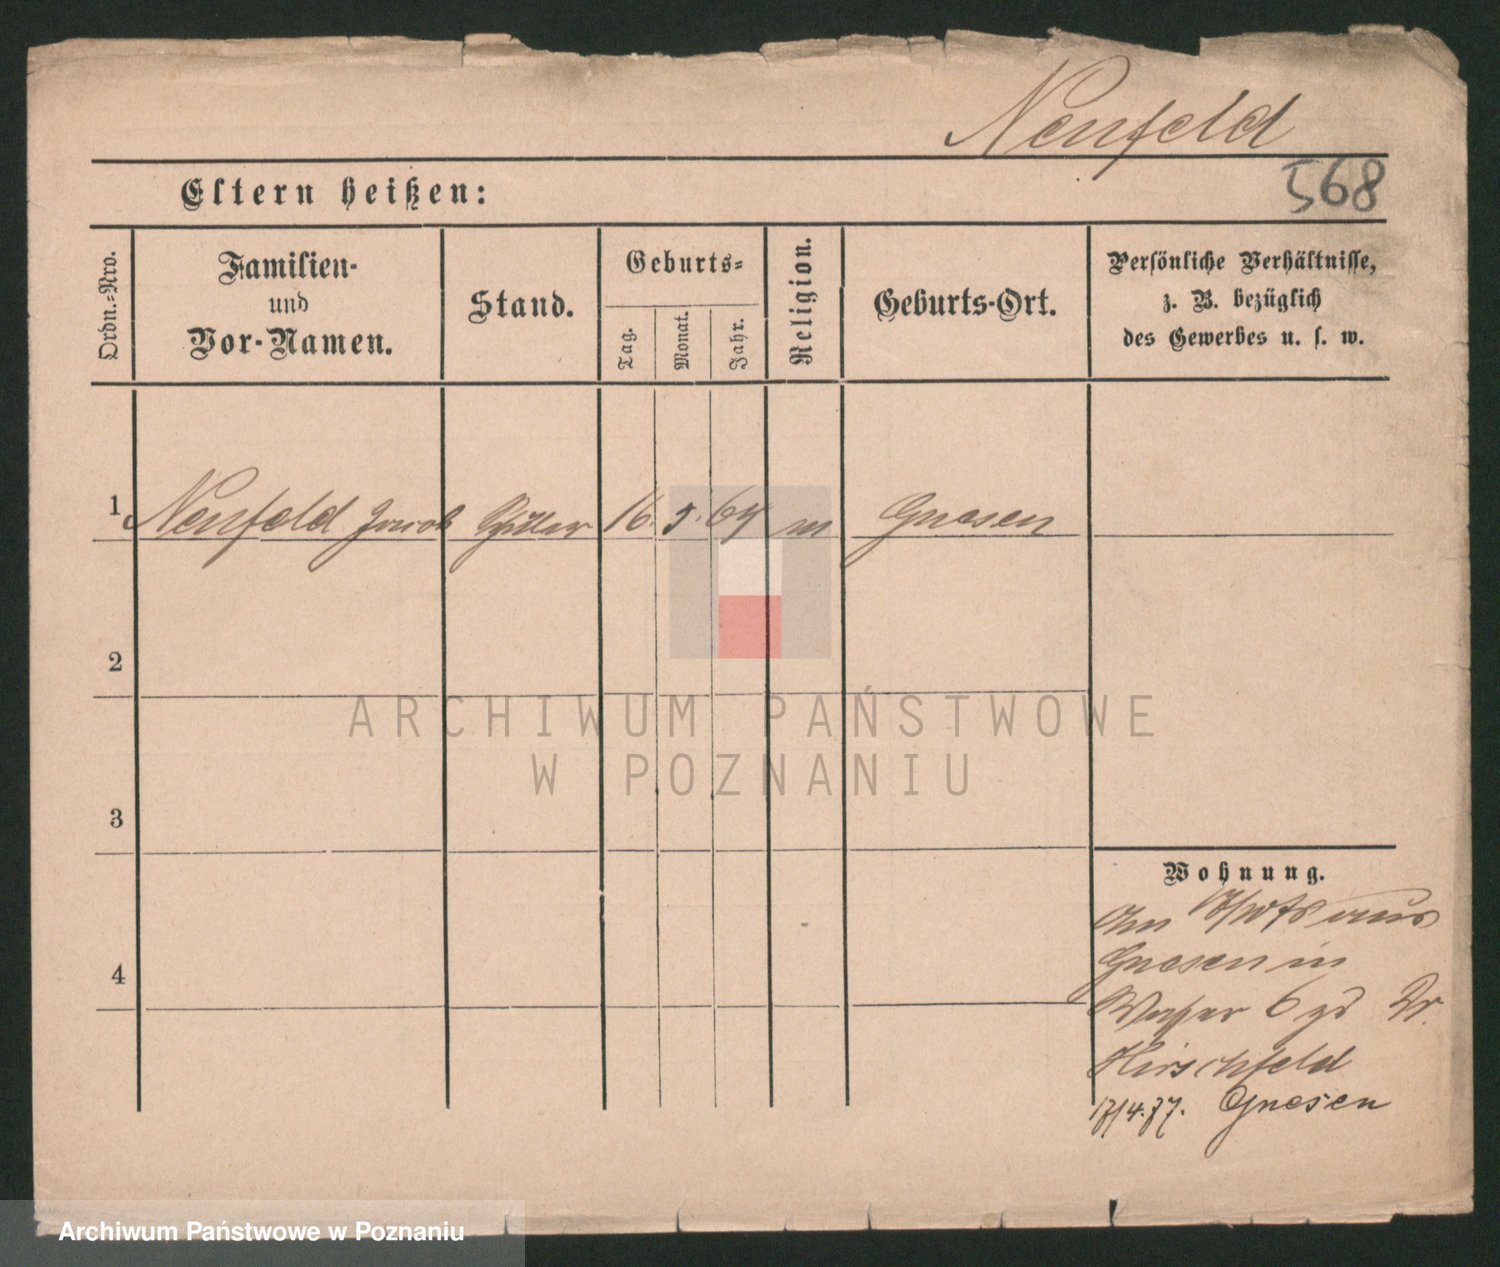 Neufeld
568
Eltern heißen:
Ordn.-Nro.
Familien-
und
Vor-Namen.
Stand.
Geburts-
Tag.
Monat.
Jahr.
Religion.
Geburts-Ort.
Persönliche Verhältnisse,
z. B. bezüglich
des Gewerbes u. s. w.
1 Neufeld Jacob 16. 5. 64 m Gnesen
2
3
4
ARCHIWUM PAŃSTWOWE
W POZNANIU
Wohnung.
Am aus
Gnesen in
Wasser 6 Dr.
Hirschfeld
Gnesen
Archiwum Państwowe w Poznaniu